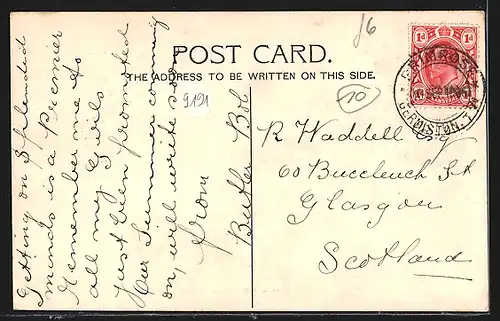 16
POST CARD.
THE ADDRESS TO BE WRITTEN ON THIS SIDE.
9191
10
1d 1d
PRIMROSE
GERMISTON
Getting on Splended
monds is a Premier
Remember me to
all my Girls
Just been promoted
Our Summer coming
on, will write soon
from
Butler Bob
R Waddell Esq
60 Buccleuch St
Glasgow
Scotland